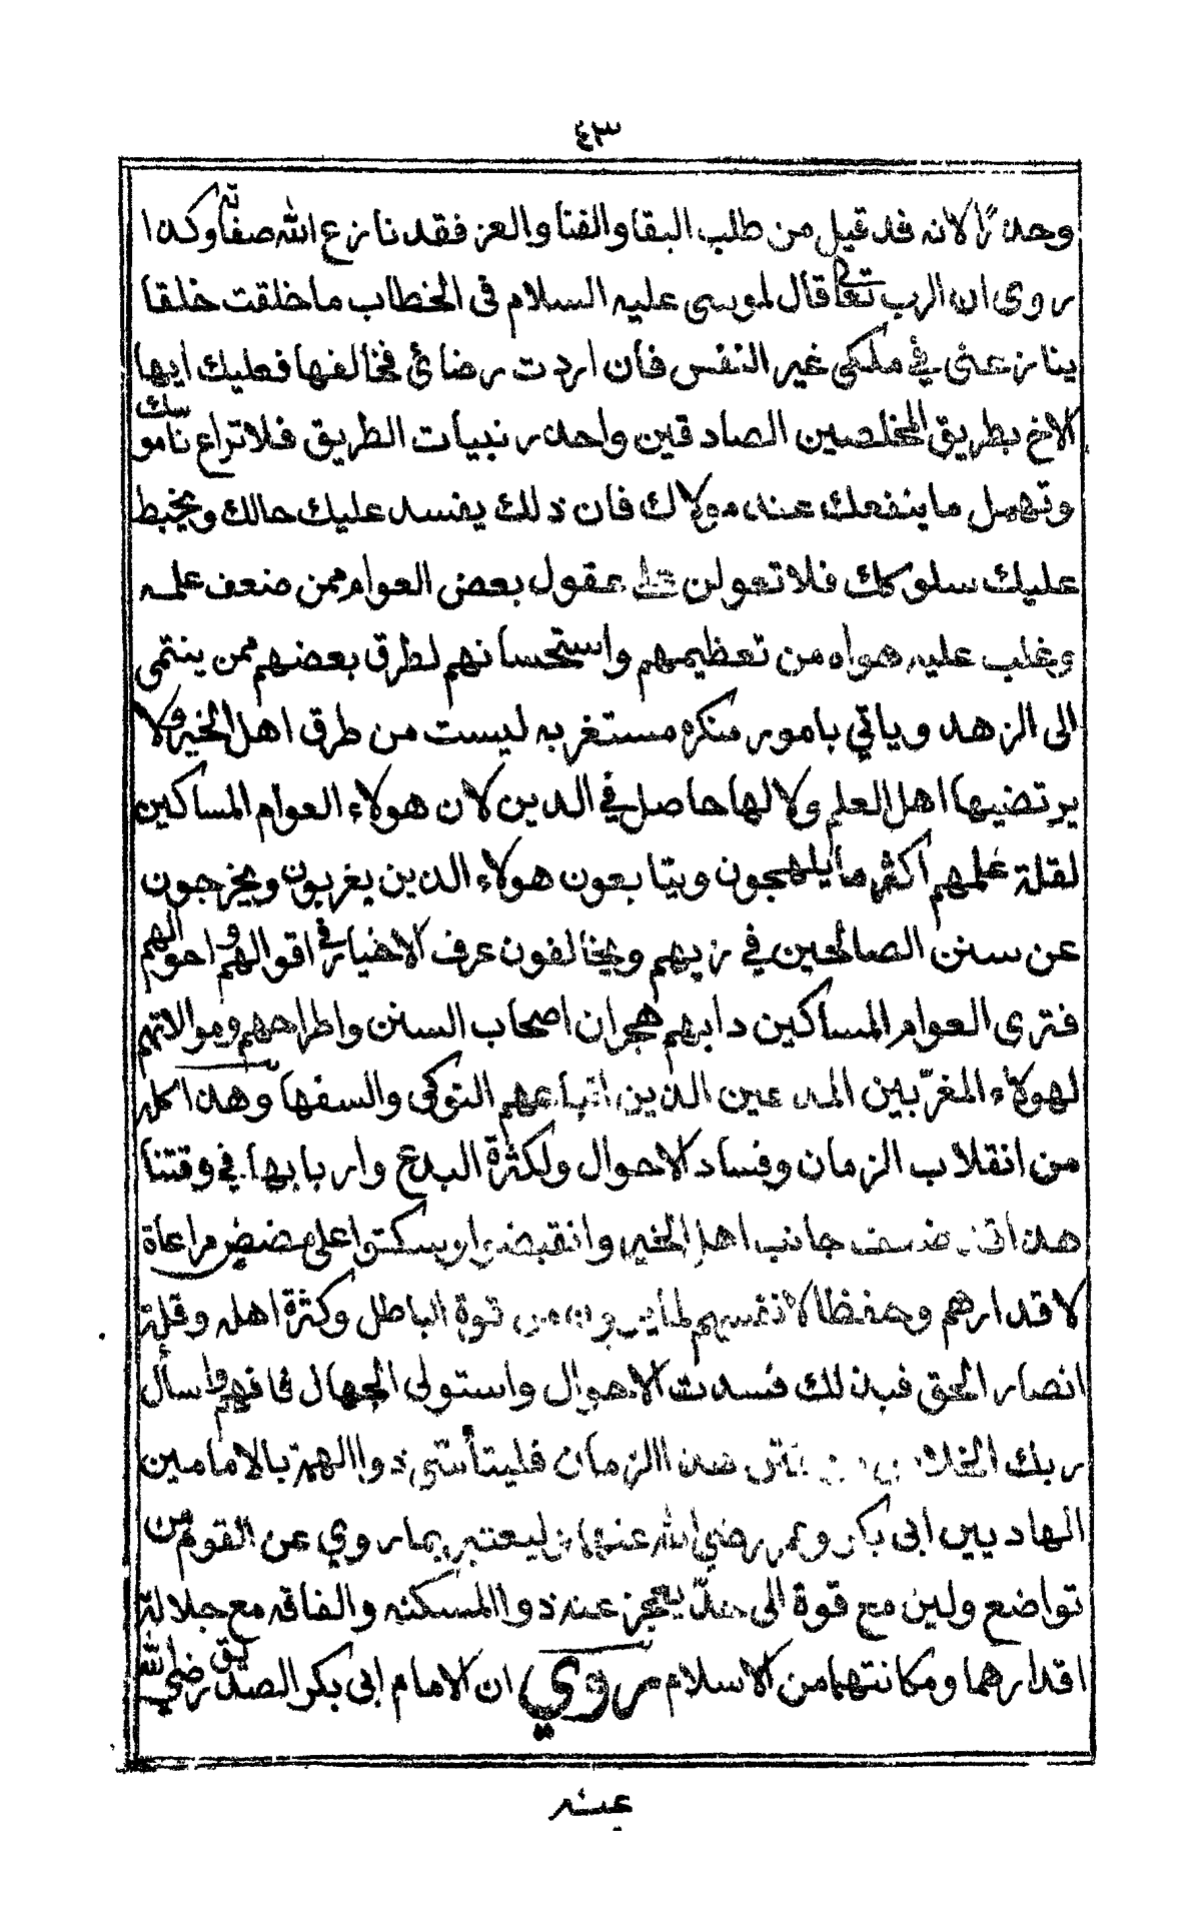 ٤٣
وحده لانه قد قيل من طلب البقا والغنا والعز فقد نازع الله صفاته وكذا
روى ان الرب تعالى قال لموسى عليه السلام فى الخطاب ما خلقت خلقا
ينازعنى في ملكى غير النفس فان اردت رضائى فخالفها فعليك ايها
الاخ بطريق المخلصين الصادقين واحذر نبيات الطريق فلا تراع ناموسك
وتهمل ما ينفعك عند مولاك فان ذلك يفسد عليك حالك ويخبط
عليك سلوكك فلا تعولن على عقول بعض العوام ممن ضعف علمه
وغلب عليه هواه من تعظيمهم واستحسانهم لطرق بعضهم ممن ينتمى
الى الزهد وياتي بامور منكره مستغربه ليست من طرق اهل الخير ولا
يرتضيها اهل العلم ولا لها حاصل في الدين لان هولاء العوام المساكين
لقلة علمهم اكثر ما يلهجون ويتابعون هولاء الذين يغربون ويخرجون
عن سنن الصالحين في زيهم ويخالفون عرف الاخيار في اقوالهم واحوالهم
فترى العوام المساكين دابهم هجران اصحاب السنن واطراحهم وموالاتهم
لهولاء المغرّبين المدعين الذين اتباعهم النوكى والسفها وهذا كله
من انقلاب الزمان وفساد الاحوال ولكثرة البدع واربابها في وقتنا
هذا ضعف جانب اهل الخير وانقبضوا وسكتوا على مضض مراعاة
لاقدارهم وحفظا لانفسهم لما يرون من قوة الباطل وكثرة اهله وقلة
انصار الحق فبذلك فسدت الاحوال واستولى الجهال فافهم واسأل
ربك الخلاص من فتن هذا الزمان فليتأسّى ذوا الهمة بالامامين
الهاديين ابى بكر وعمر رضي الله عنهما وليعتبر بما روي عن القوم من
تواضع ولين مع قوة الى حدّ يعجز عنه ذوا المسكنه والفاقه مع جلالة
اقدارهما ومكانتهما من الاسلام روي ان الامام ابى بكر الصديق رضي الله
عنه